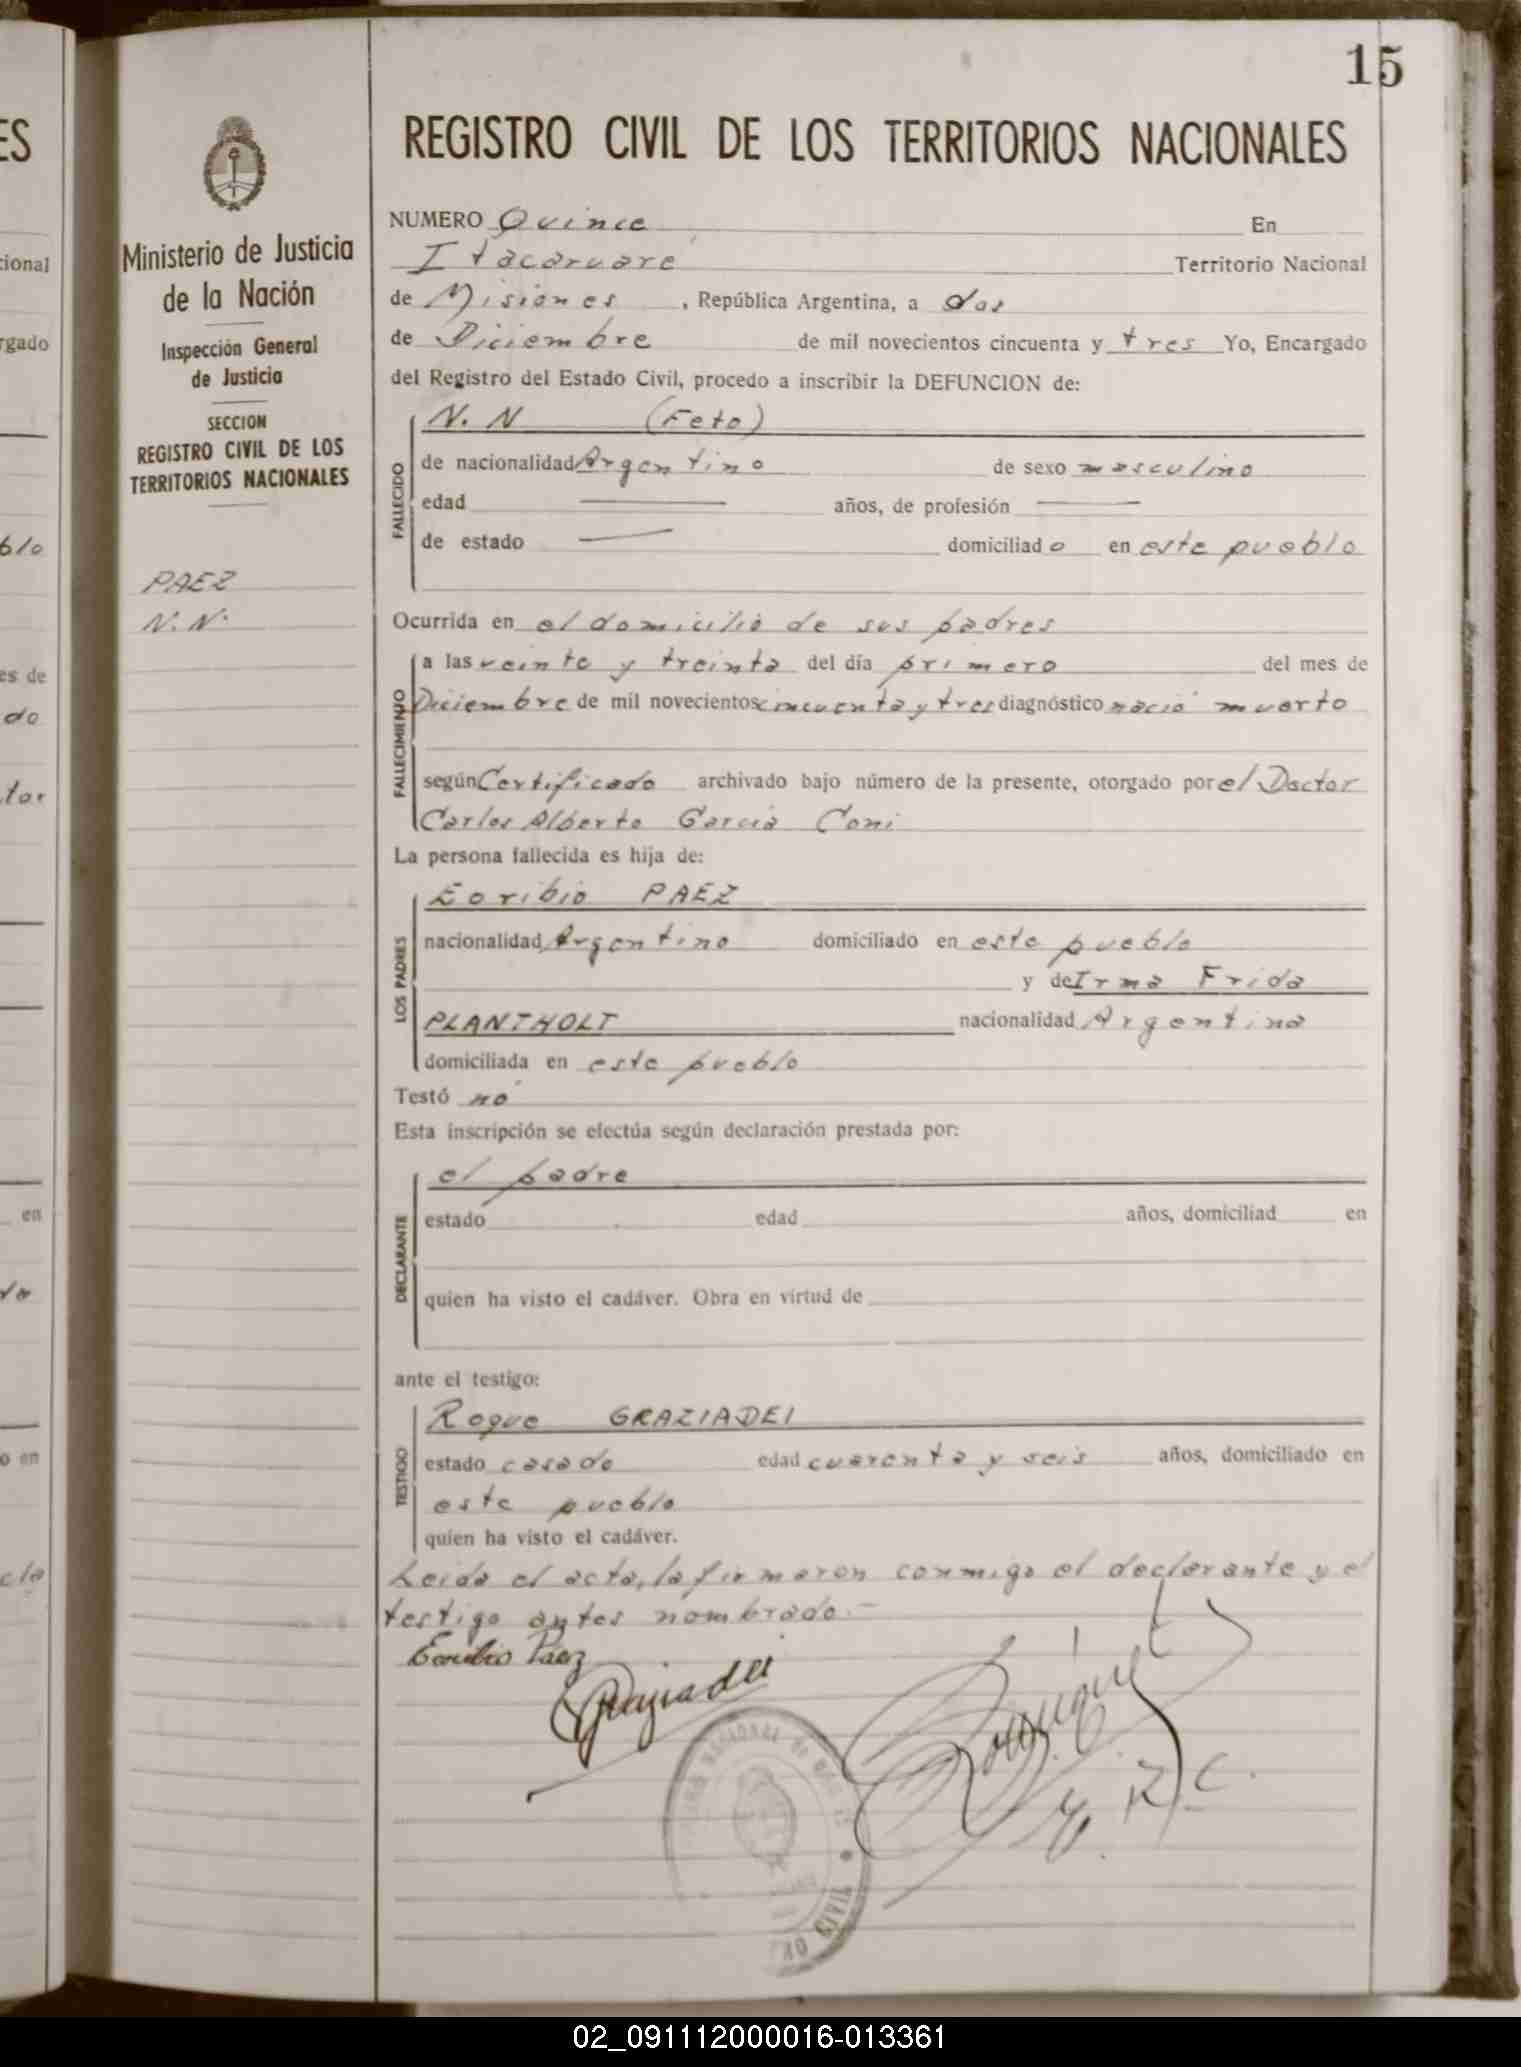 15
REGISTRO CIVIL DE LOS TERRITORIOS NACIONALES
Ministerio de Justicia
de la Nación
Inspección General
de Justicia
SECCION
REGISTRO CIVIL DE LOS
TERRITORIOS NACIONALES
PAEZ
N. N.
NUMERO Quince En
Itacaruaré Territorio Nacional
de Misiones , República Argentina, a dos
de Diciembre de mil novecientos cincuenta y tres Yo, Encargado
del Registro del Estado Civil, procedo a inscribir la DEFUNCION de:
FALLECIDO
N. N (Feto)
de nacionalidad Argentino de sexo masculino
edad años, de profesión
de estado domiciliado en este pueblo
Ocurrida en el domicilio de sus padres
FALLECIMIENTO
a las veinte y treinta del día primero del mes de
Diciembre de mil novecientos cincuenta y tres diagnóstico nació muerto
según Certificado archivado bajo número de la presente, otorgado por el Doctor
Carlos Alberto García Coni
La persona fallecida es hija de:
LOS PADRES
Eoribio PAEZ
nacionalidad Argentino domiciliado en este pueblo
y de Irma Frida
PLANTHOLT nacionalidad Argentina
domiciliada en este pueblo
Testó no
Esta inscripción se efectúa según declaración prestada por:
DECLARANTE
el padre
estado edad años, domiciliad en
quien ha visto el cadáver. Obra en virtud de
ante el testigo:
TESTIGO
Roque GRAZIADEI
estado casado edad cuarenta y seis años, domiciliado en
este pueblo
quien ha visto el cadáver.
Leida el acta, la firmaron conmigo el declarante y el
testigo antes nombrado.-
Paez
Graziadei
E. R. C.
02_091112000016-013361